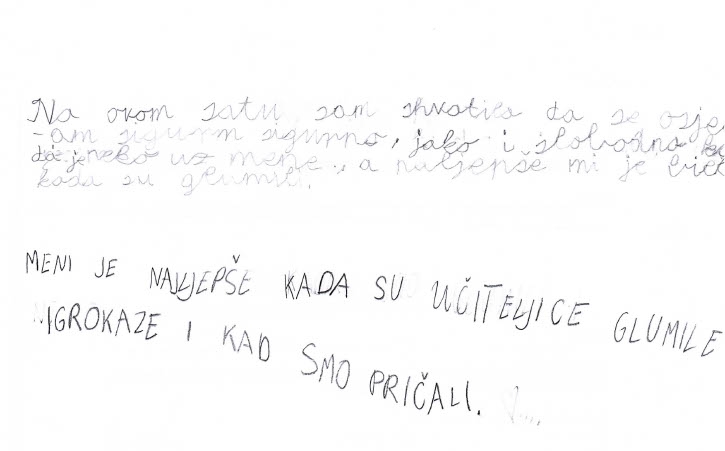 Na ovom satu sam shvatio da se osje
-am sigurn sigurno, jako i slobodno
da je neko uz mene, a najljepše mi je
kada su glumili.
MENI JE NAJLJEPŠE KADA SU UČITELJICE GLUMILE
IGROKAZE I KAD SMO PRIČALI.